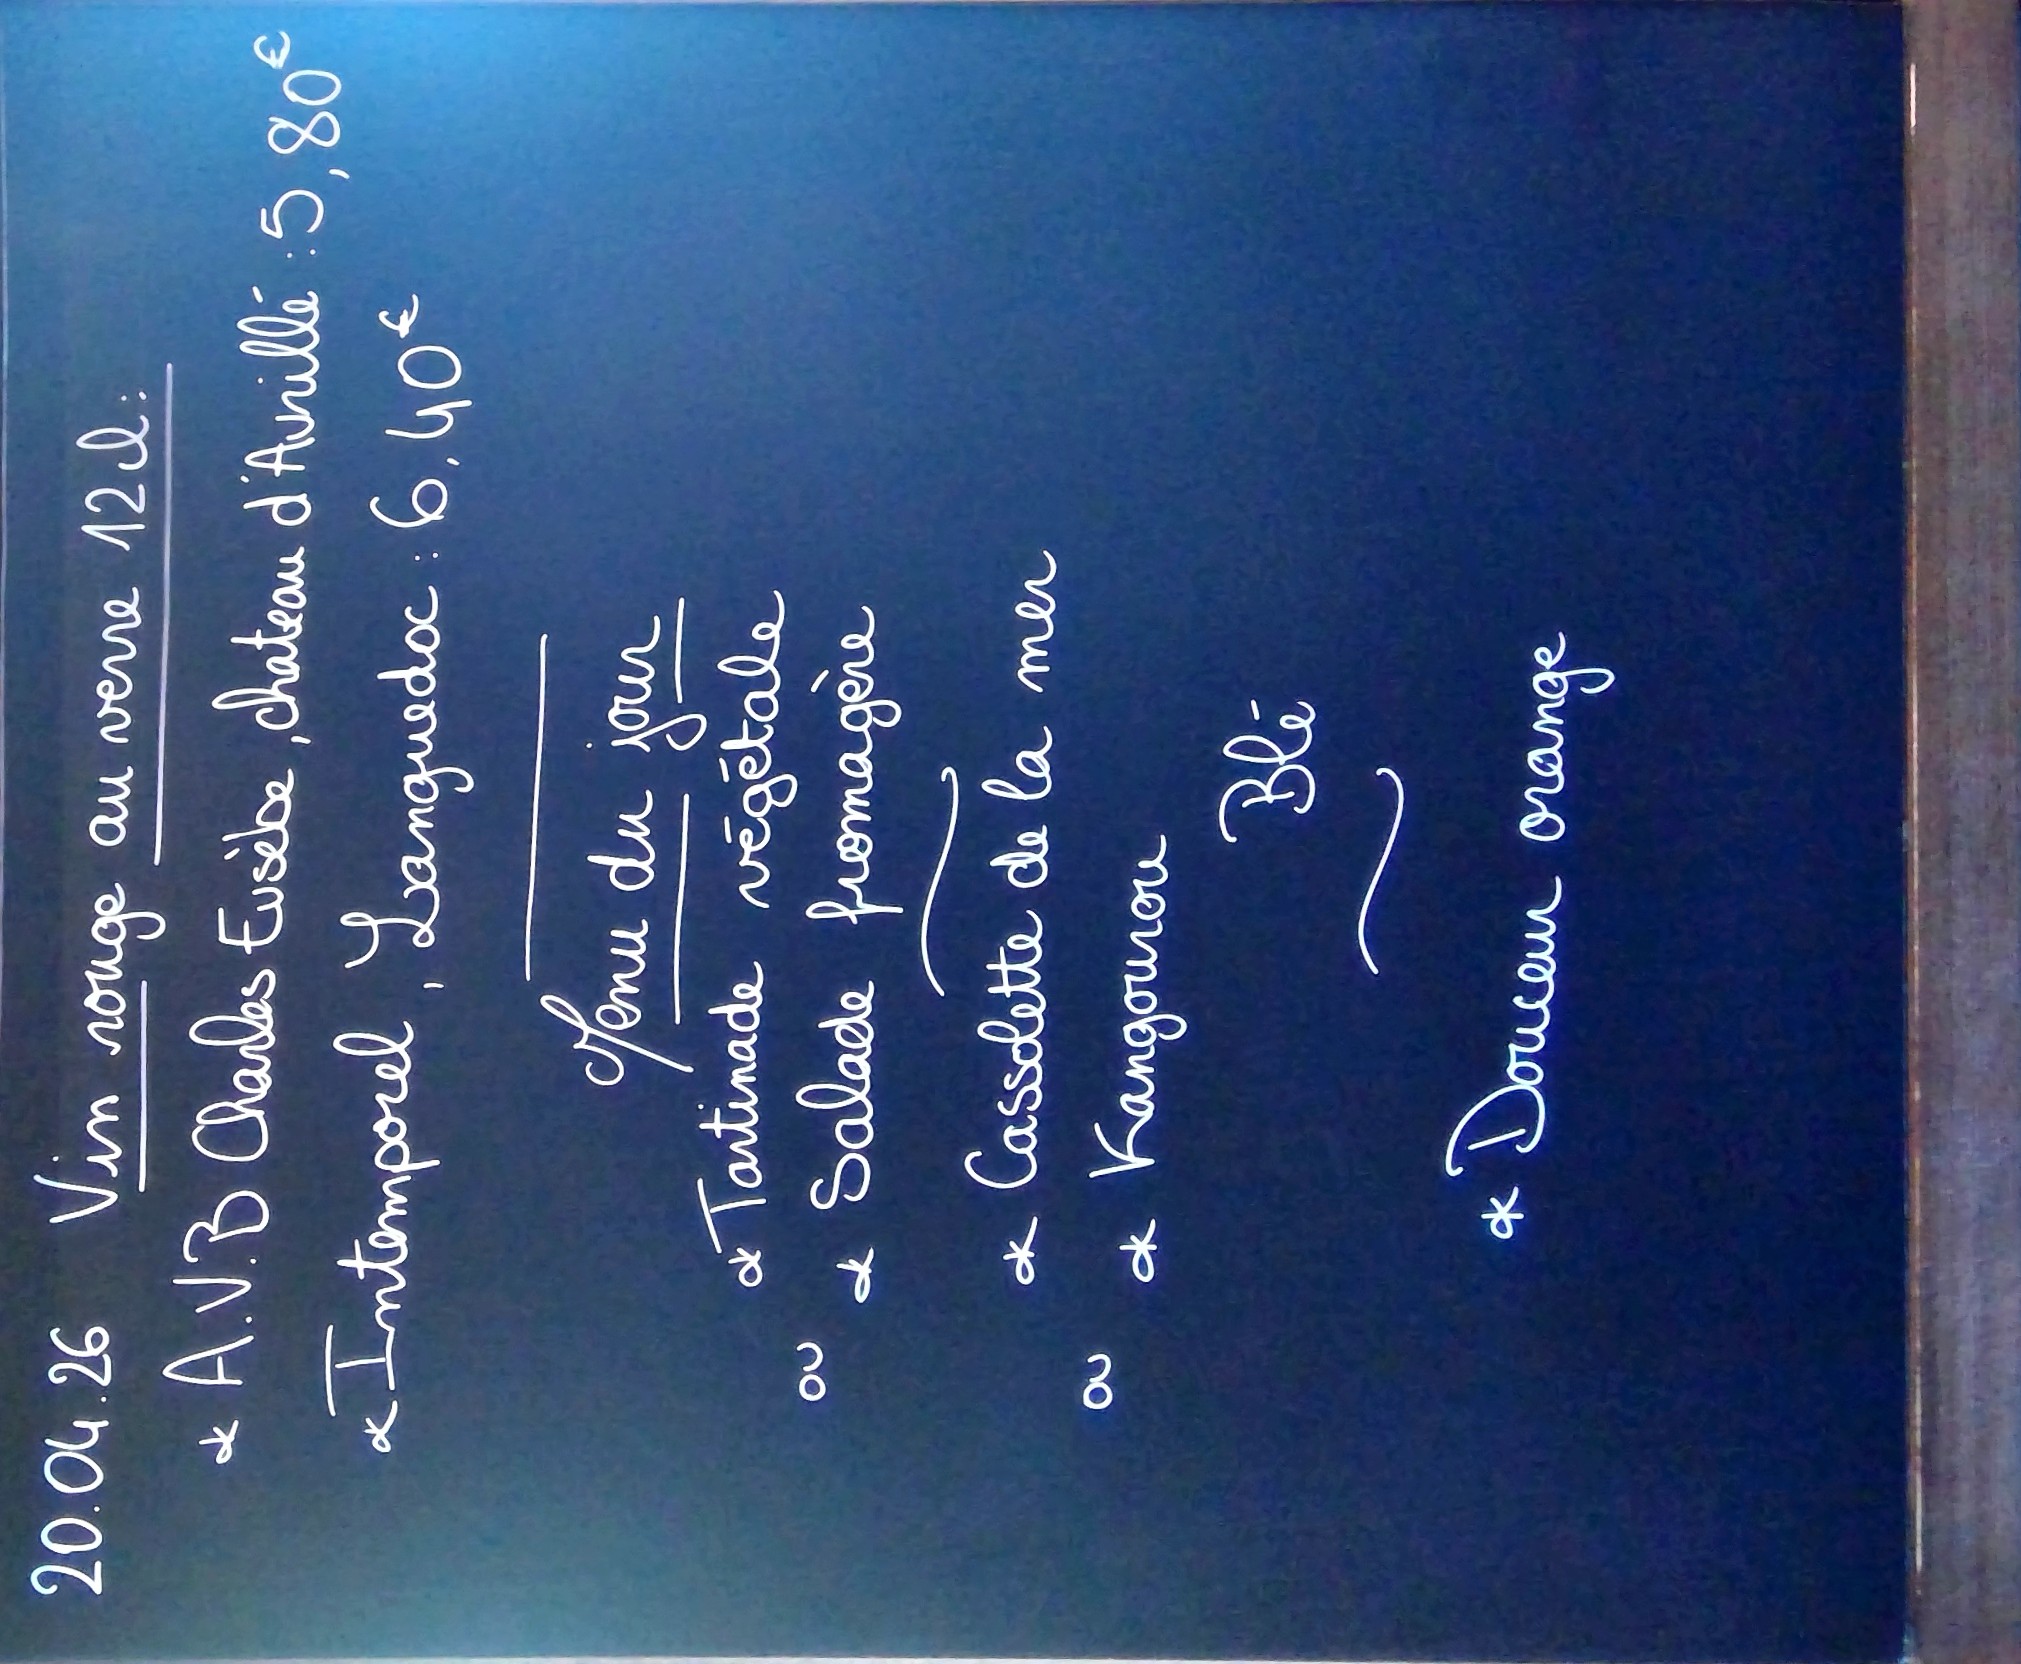 20.04.26 Vin rouge au verre 12cl:
* A.V.B Charles Eusèbe, chateau d'Avrillé : 5,80€
* Intemporel, Languedoc : 6,40€
Menu du jour
* Tartinade végétale
ou
* Salade fromagère
* Cassolette de la mer
ou
* Kangourou
Blé
* Douceur orange